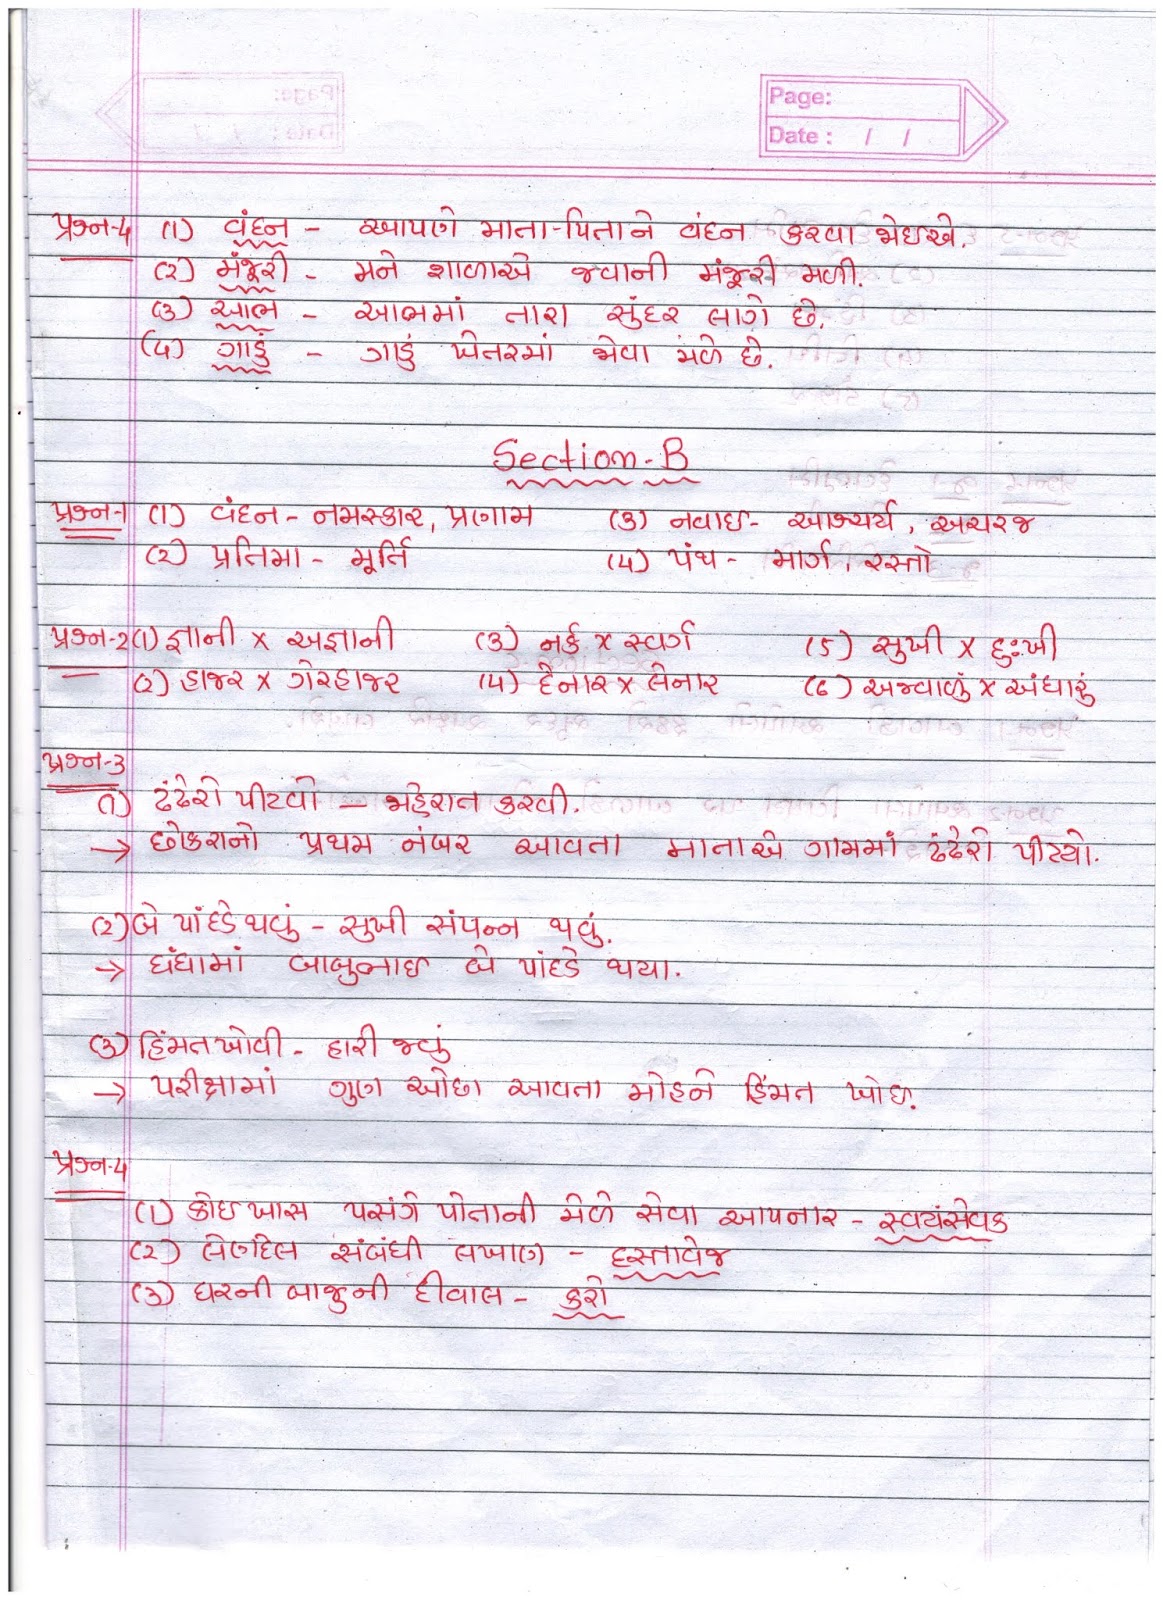 Page:
Date : / /
પ્રશ્ન-4 (1) વંદન - આપણે માતા-પિતાને વંદન કરવા જોઇએ.
(૨) મંજૂરી - મને શાળાએ જવાની મંજૂરી મળી.
(૩) આભ - આભમાં તારા સુંદર લાગે છે.
(૫) ગાડું - ગાડું ખેતરમાં જોવા મળે છે.
Section-B
પ્રશ્ન-1 (1) વંદન - નમસ્કાર, પ્રણામ (૩) નવાઇ - આશ્ચર્ય, અચરજ
(૨) પ્રતિમા - મૂર્તિ (4) પંથ - માર્ગ, રસ્તો
પ્રશ્ન-2 (1) જ્ઞાની x અજ્ઞાની (૩) નર્ક x સ્વર્ગ (5) સુખી x દુઃખી
(૨) હાજર x ગેરહાજર (4) દેનાર x લેનાર (6) અજવાળું x અંધારું
પ્રશ્ન-૩
(1) ઢંઢેરો પીટવો - જાહેરાત કરવી.
→ છોકરાનો પ્રથમ નંબર આવતા માતાએ ગામમાં ઢંઢેરો પીટ્યો.
(૨) બે પાંદડે થવું - સુખી સંપન્ન થવું.
→ ધંધામાં બાબુભાઇ બે પાંદડે થયા.
(૩) હિંમત ખોવી - હારી જવું
→ પરીક્ષામાં ગુણ ઓછા આવતા મોહને હિંમત ખોઇ.
પ્રશ્ન-4
(1) કોઇ ખાસ પસંગે પોતાની મેળે સેવા આપનાર - સ્વયંસેવક
(૨) લેણદેણ સંબંધી લખાણ - દસ્તાવેજ
(૩) ઘરની બાજુની દીવાલ - કરો